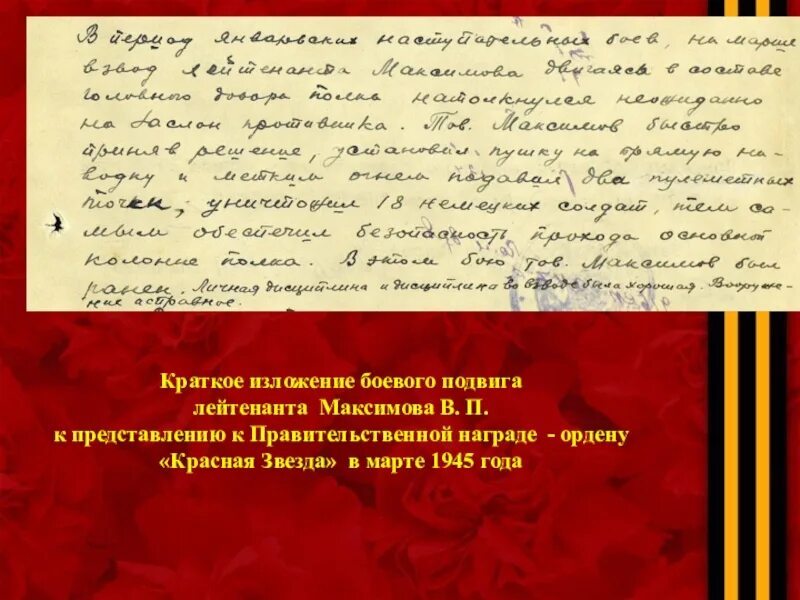 В период январских наступательных боев, на марше
взвод лейтенанта Максимова двигаясь в составе
головного дозора полка натолкнулся неожиданно
на заслон противника. Тов. Максимов быстро
приняв решение, установил пушку на прямую на-
водку и метким огнем подавил два пулеметных
точки, уничтожил 18 немецких солдат, тем са-
мым обеспечил безопасность прохода основной
колонне полка. В этом бою тов. Максимов был
ранен. Личная дисциплина и дисциплина во взводе была хорошая. Вооруже-
ние
Краткое изложение боевого подвига
лейтенанта Максимова В. П.
к представлению к Правительственной награде - ордену
«Красная Звезда» в марте 1945 года